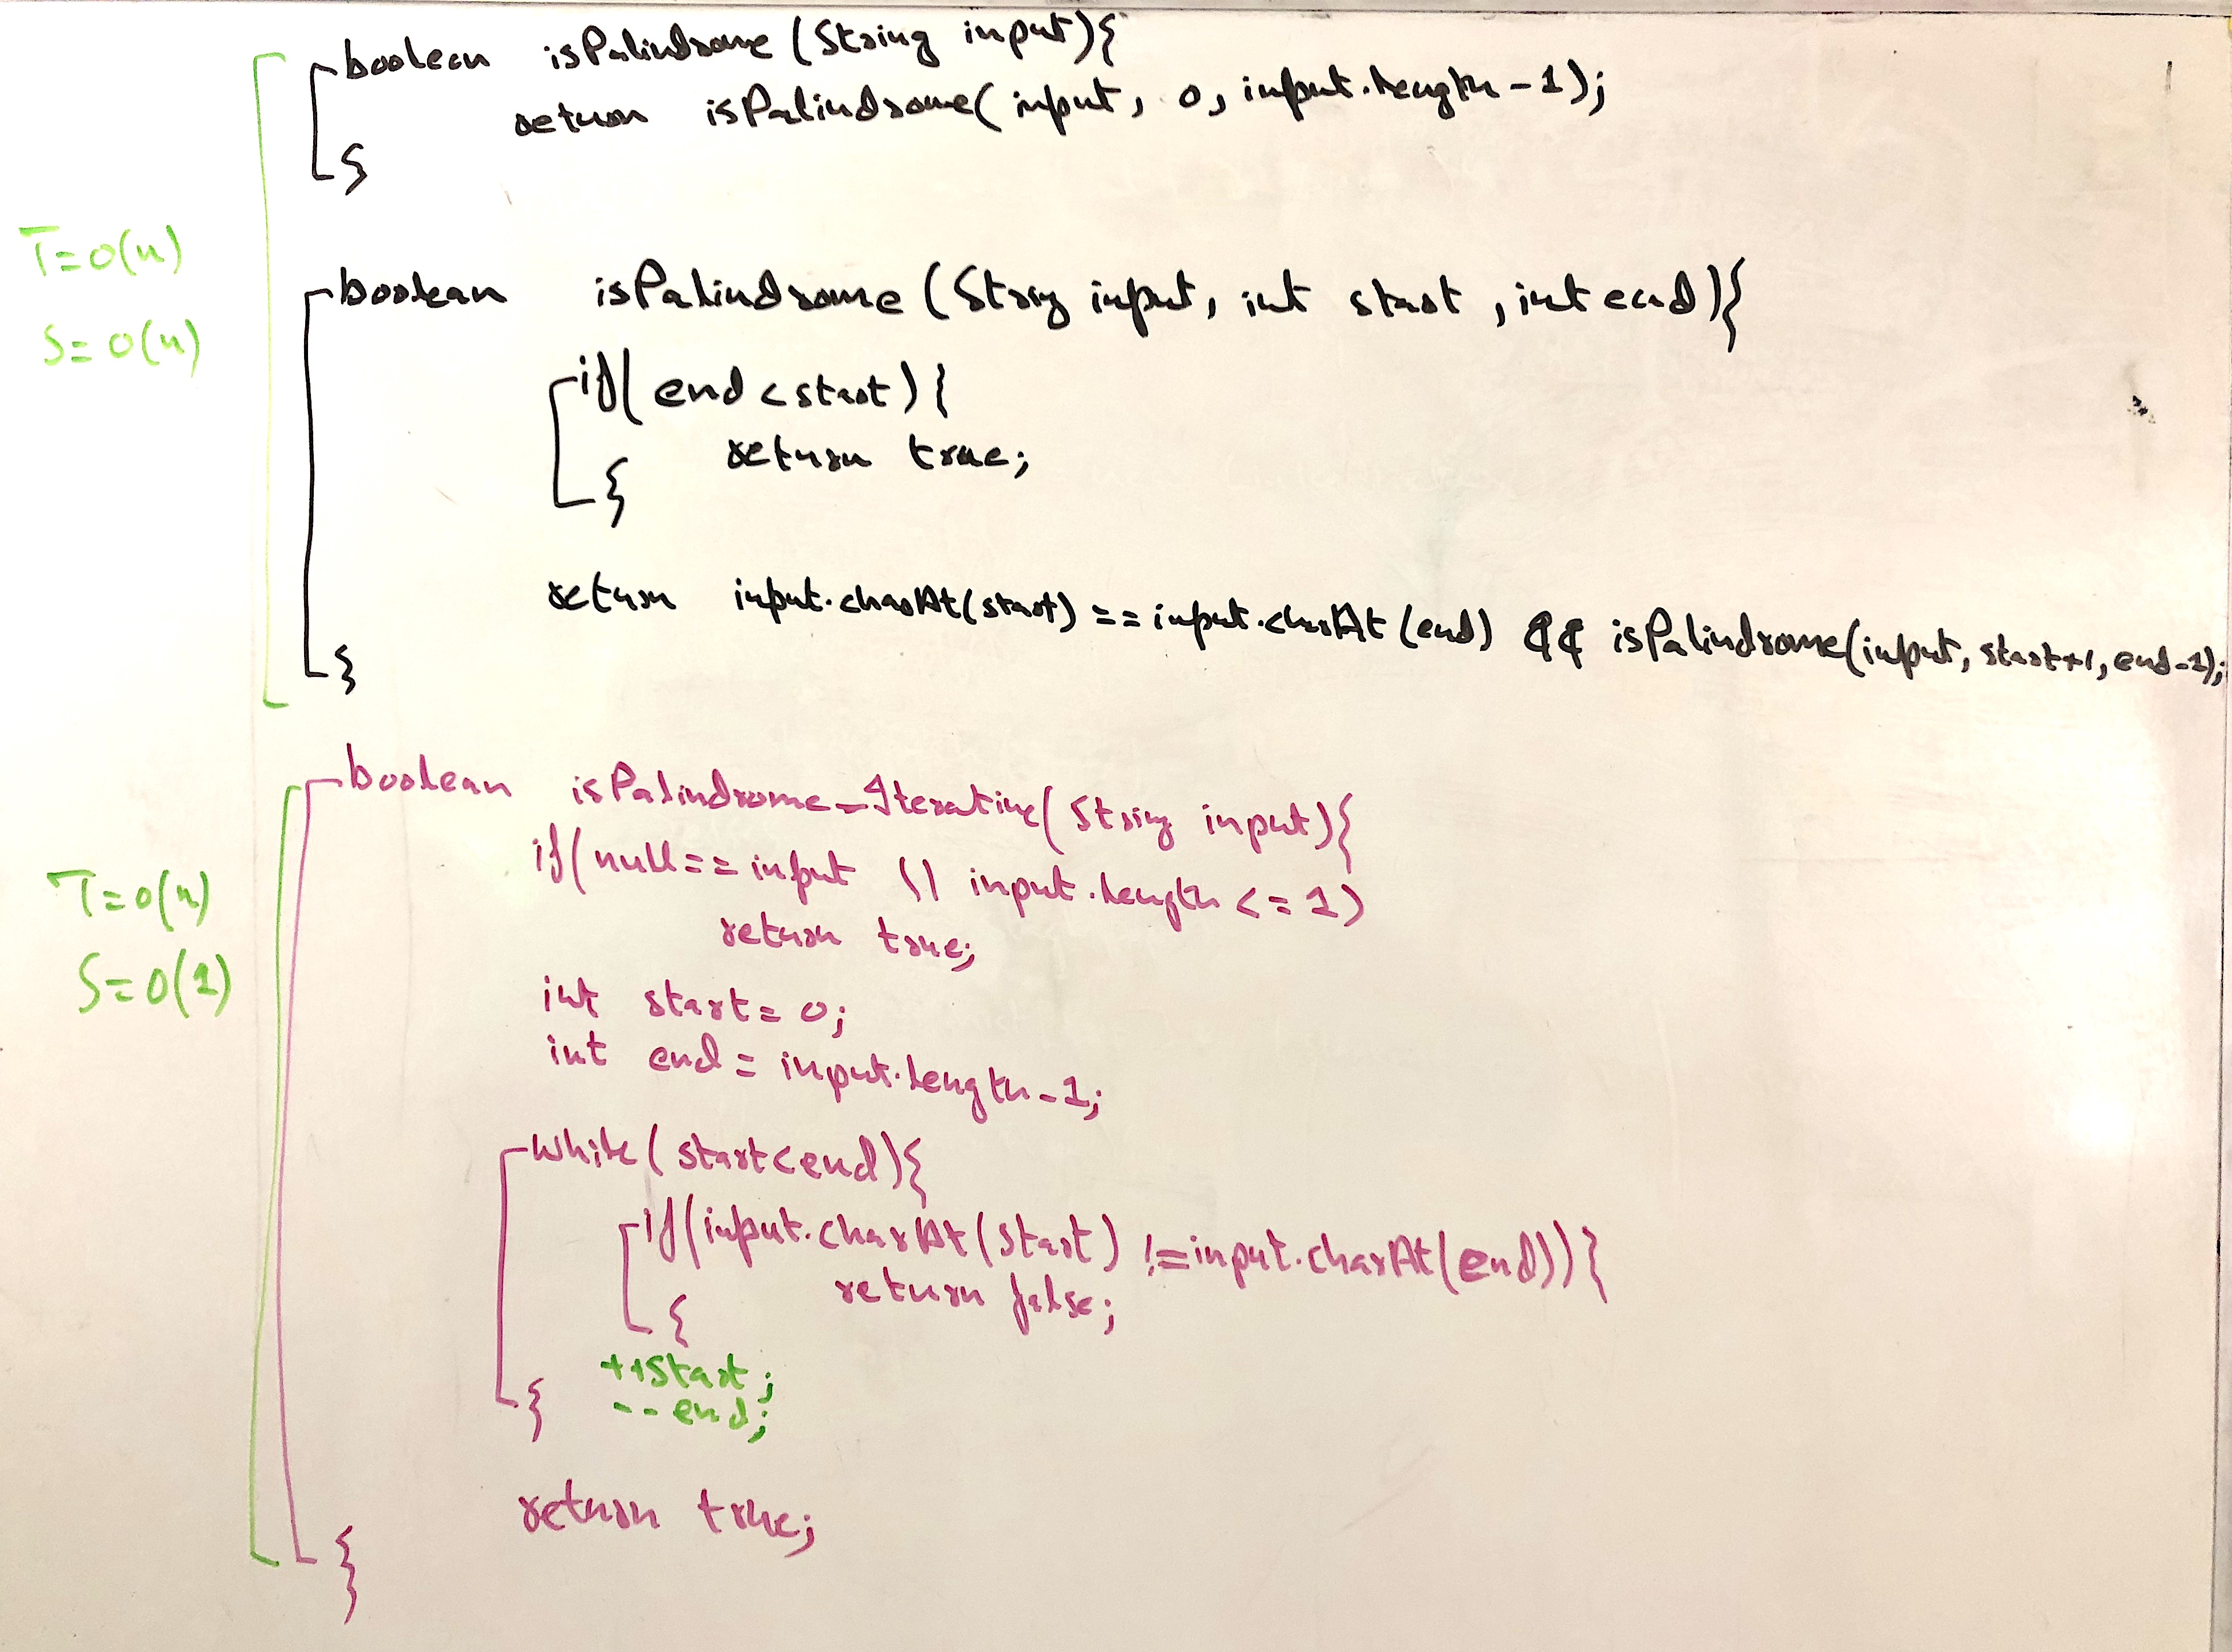 boolean isPalindrome (String input){
return isPalindrome( input, 0, input.length-1);
}
T=O(n)
S=O(n)
boolean isPalindrome (String input, int start, int end){
if( end < start) {
return true;
}
return input.charAt(start) == input.charAt(end) && isPalindrome(input, start+1, end-1);
}
boolean isPalindrome_Iterative( String input){
if( null == input || input.length <= 1)
return true;
T=O(n)
S=O(1)
int start = 0;
int end = input.length-1;
while( start < end){
if(input.charAt(start) != input.charAt(end)){
return false;
}
++start;
--end;
}
return true;
}